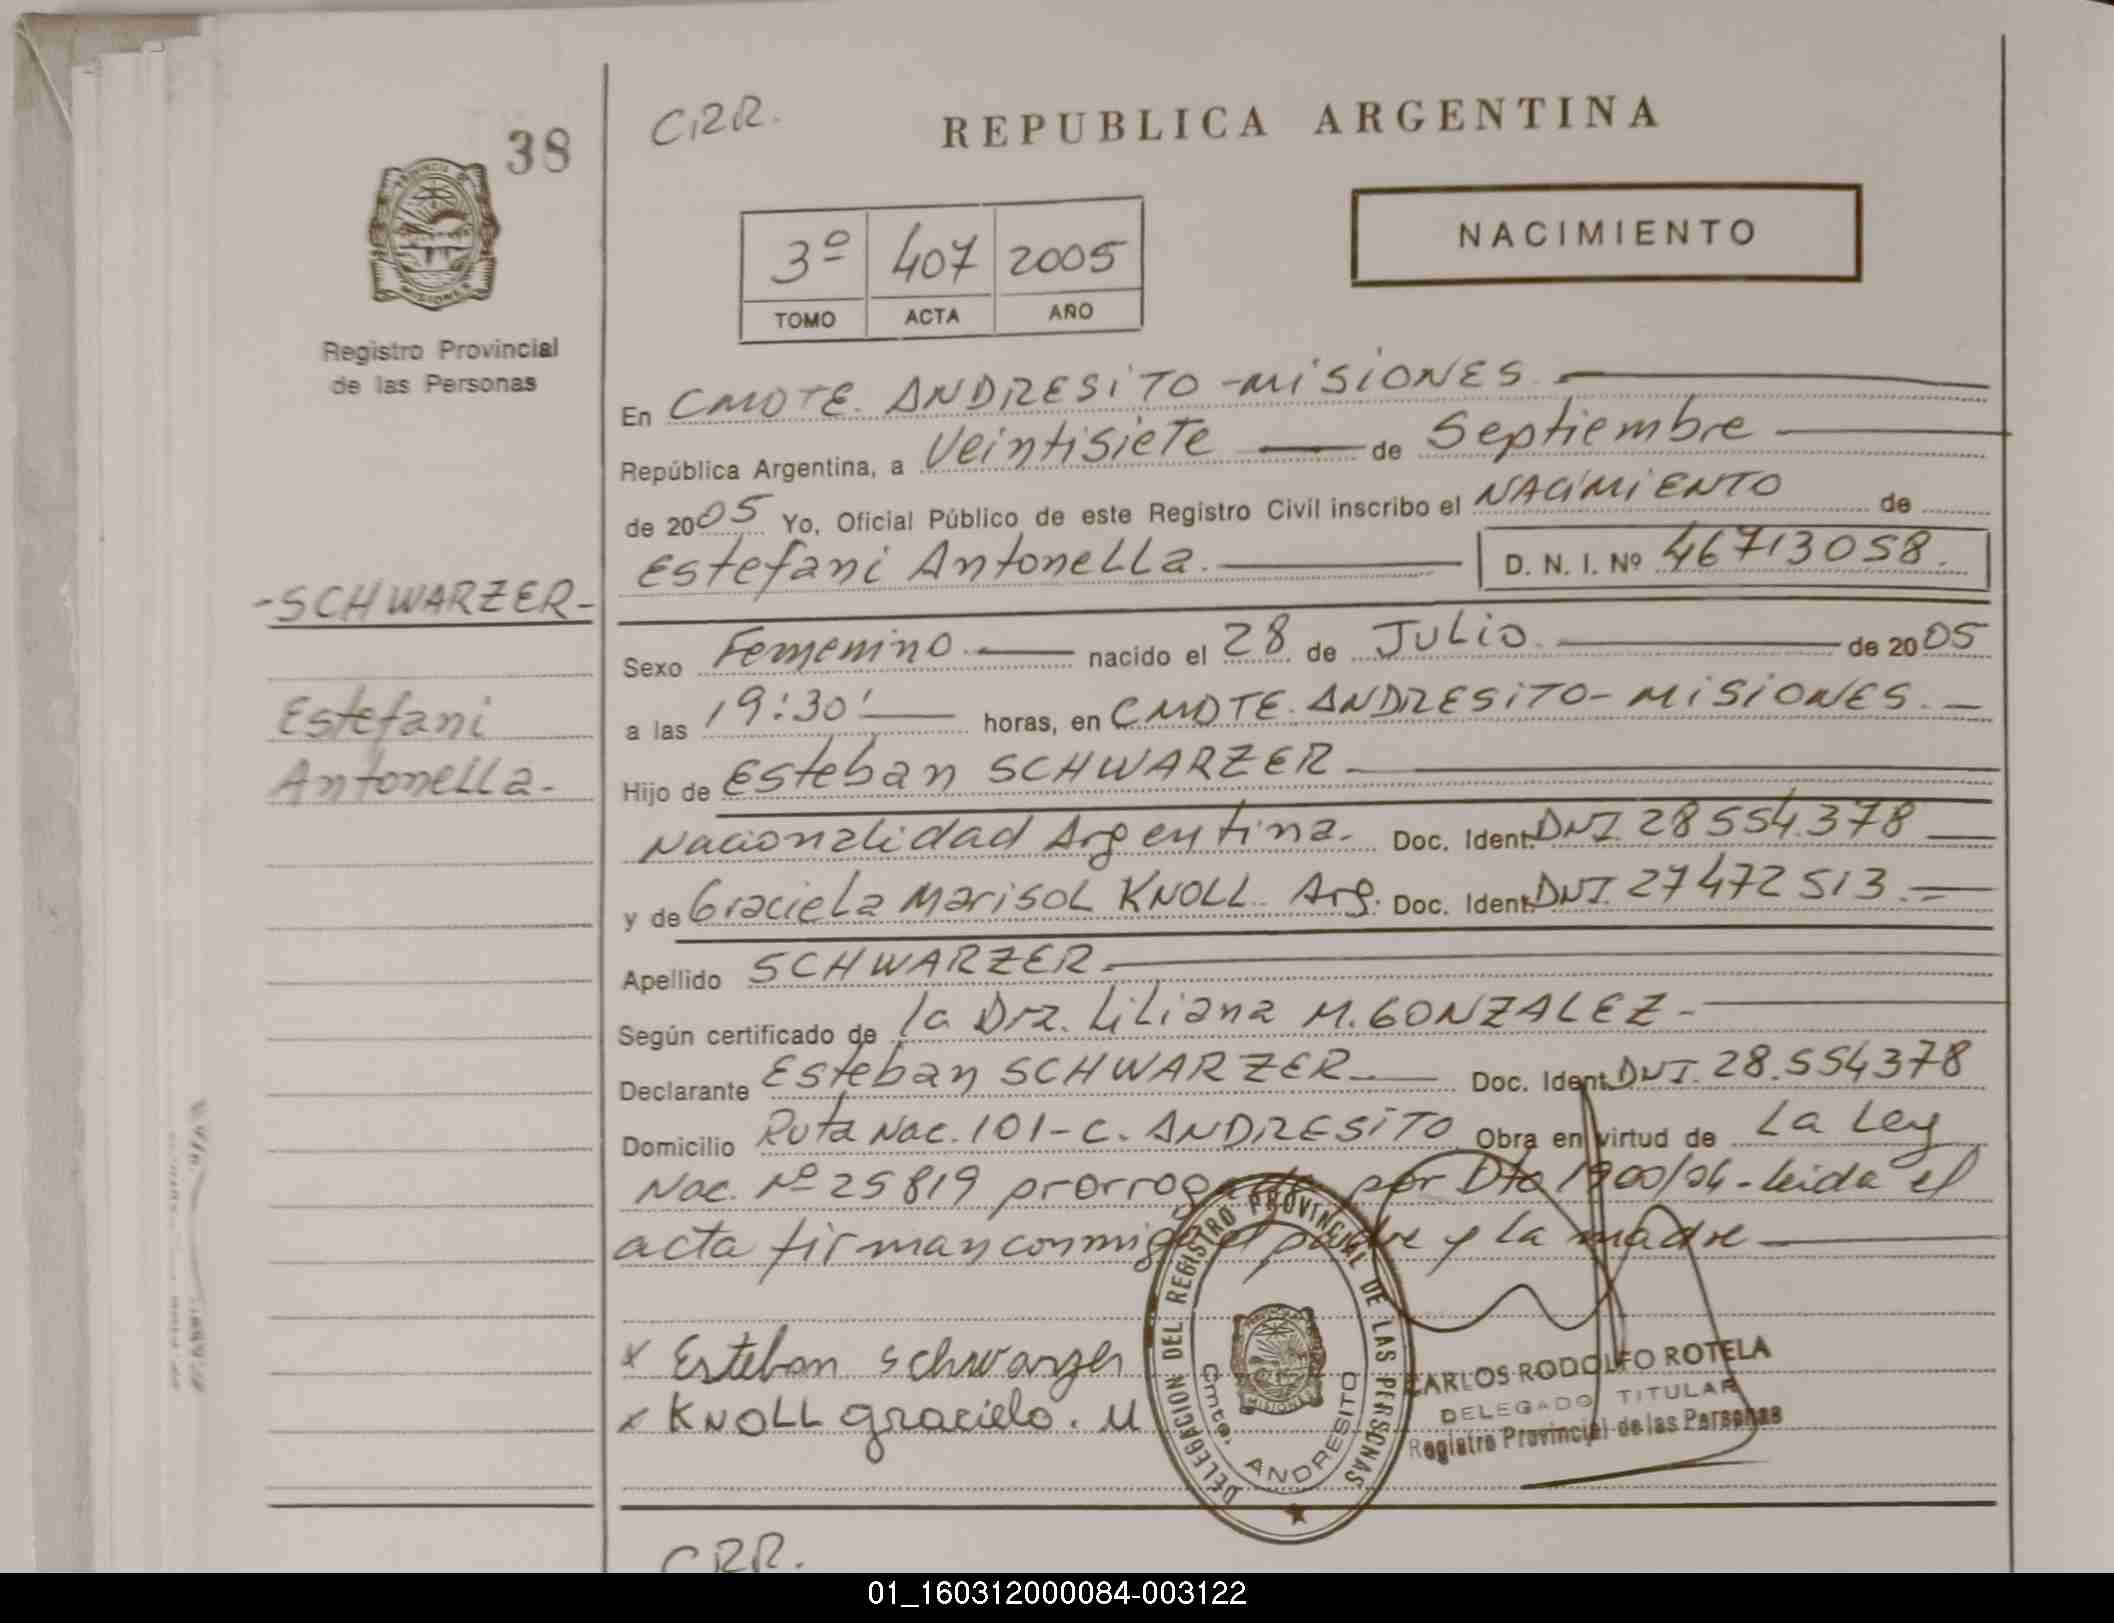 38
C.R.R.
REPUBLICA ARGENTINA
PROVINCIA
MISIONES
Registro Provincial
de las Personas
NACIMIENTO
3º 407 2005
TOMO ACTA AÑO
En CMDTE. ANDRESITO - MISIONES.
República Argentina, a Veintisiete de Septiembre
de 2005 Yo, Oficial Público de este Registro Civil inscribo el NACIMIENTO de
Estefani Antonella. D. N. I. Nº 46713058.
-SCHWARZER-
Estefani
Antonella.-
Sexo Femenino. nacido el 28 de JULIO. de 2005
a las 19:30' horas, en CMDTE. ANDRESITO - MISIONES. -
Hijo de Esteban SCHWARZER
Nacionalidad Argentina. Doc. Ident. DNI. 28554.378
y de Graciela Marisol KNOLL. Arg. Doc. Ident. DNI. 27472513.=
Apellido SCHWARZER.
Según certificado de la Dra. Liliana M. GONZALEZ -
Declarante Esteban SCHWARZER. Doc. Ident. DNI. 28.554378
Domicilio Ruta Nac. 101 - C. ANDRESITO Obra en virtud de La Ley
Nac. Nº 25819 prorrogada por Dto 1900/04 - leida el
acta firman conmigo el padre y la madre
x Esteban Schwarzer
x KNOLL graciela. M
DELEGACION DEL REGISTRO PROVINCIAL DE LAS PERSONAS
Cmte. ANDRESITO
MISIONES
CARLOS RODOLFO ROTELA
DELEGADO TITULAR
Registro Provincial de las Personas
CRR.
01_160312000084-003122